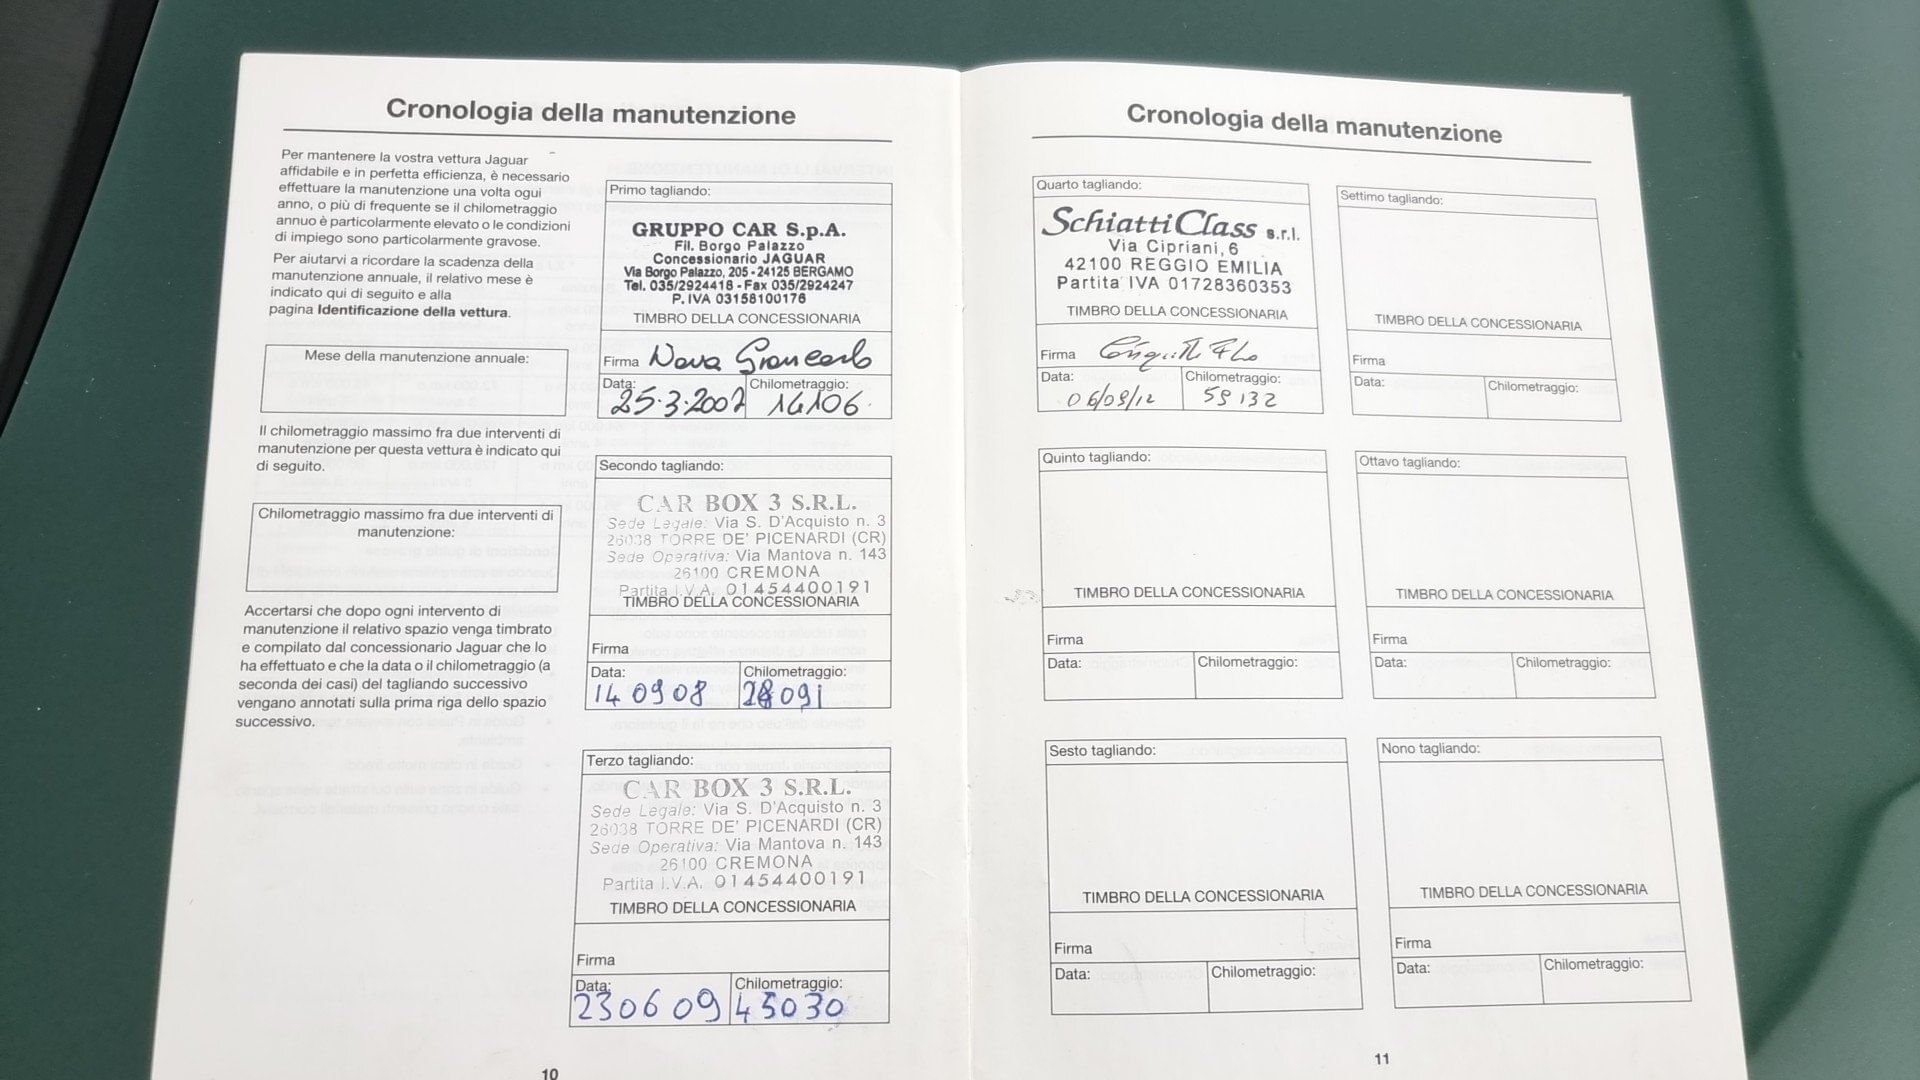 Cronologia della manutenzione
Per mantenere la vostra vettura Jaguar
affidabile e in perfetta efficienza, è necessario
effettuare la manutenzione una volta ogui
anno, o più di frequente se il chilometraggio
annuo è particolarmente elevato o le condizioni
di impiego sono particolarmente gravose.
Per aiutarvi a ricordare la scadenza della
manutenzione annuale, il relativo mese è
indicato qui di seguito e alla
pagina Identificazione della vettura.
Mese della manutenzione annuale:
Il chilometraggio massimo fra due interventi di
manutenzione per questa vettura è indicato qui
di seguito.
Chilometraggio massimo fra due interventi di
manutenzione:
Accertarsi che dopo ogni intervento di
manutenzione il relativo spazio venga timbrato
e compilato dal concessionario Jaguar che lo
ha effettuato e che la data o il chilometraggio (a
seconda dei casi) del tagliando successivo
vengano annotati sulla prima riga dello spazio
successivo.
Primo tagliando:
GRUPPO CAR S.p.A.
Fil. Borgo Palazzo
Concessionario JAGUAR
Via Borgo Palazzo, 205 - 24125 BERGAMO
Tel. 035/2924418 - Fax 035/2924247
P. IVA 03158100176
TIMBRO DELLA CONCESSIONARIA
Firma Nava Giancarlo
Data: Chilometraggio:
25.3.2007 14106
Secondo tagliando:
CAR BOX 3 S.R.L.
Sede Legale: Via S. D'Acquisto n. 3
26038 TORRE DE' PICENARDI (CR)
Sede Operativa: Via Mantova n. 143
26100 CREMONA
Partita I.V.A. 01454400191
TIMBRO DELLA CONCESSIONARIA
Firma
Data: Chilometraggio:
14 09 08
Terzo tagliando:
CAR BOX 3 S.R.L.
Sede Legale: Via S. D'Acquisto n. 3
26038 TORRE DE' PICENARDI (CR)
Sede Operativa: Via Mantova n. 143
26100 CREMONA
Partita I.V.A. 01454400191
TIMBRO DELLA CONCESSIONARIA
Firma
Data: Chilometraggio:
23 06 09 45030
10
Cronologia della manutenzione
Quarto tagliando:
SchiattiClass s.r.l.
Via Cipriani, 6
42100 REGGIO EMILIA
Partita IVA 01728360353
TIMBRO DELLA CONCESSIONARIA
Firma
Data: Chilometraggio:
06/09/12 59132
Quinto tagliando:
TIMBRO DELLA CONCESSIONARIA
Firma
Data: Chilometraggio:
Sesto tagliando:
TIMBRO DELLA CONCESSIONARIA
Firma
Data: Chilometraggio:
Settimo tagliando:
TIMBRO DELLA CONCESSIONARIA
Firma
Data: Chilometraggio:
Ottavo tagliando:
TIMBRO DELLA CONCESSIONARIA
Firma
Data: Chilometraggio:
Nono tagliando:
TIMBRO DELLA CONCESSIONARIA
Firma
Data: Chilometraggio:
11